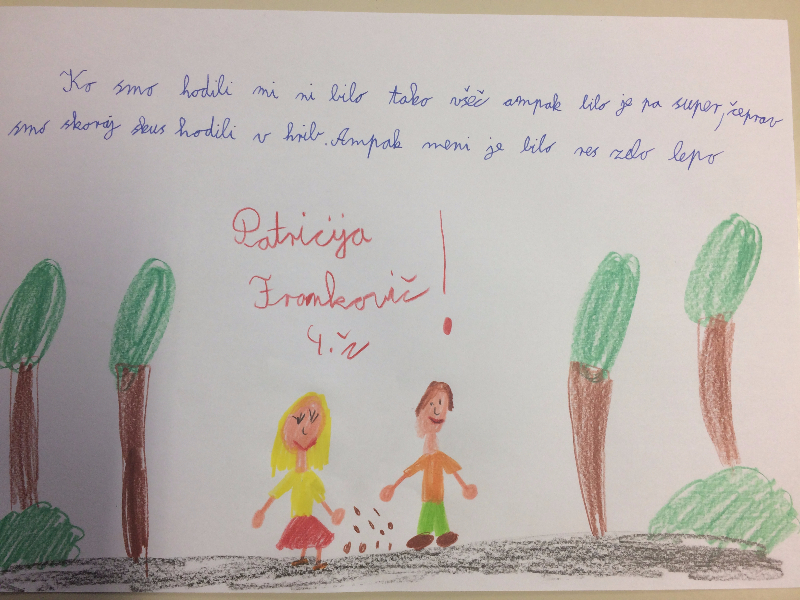 Ko smo hodili mi ni bilo tako všeč ampak bilo je pa super, čeprav
smo skoraj skus hodili v hrib. Ampak meni je bilo res zelo lepo
Patricija !
Frankovič
4. č